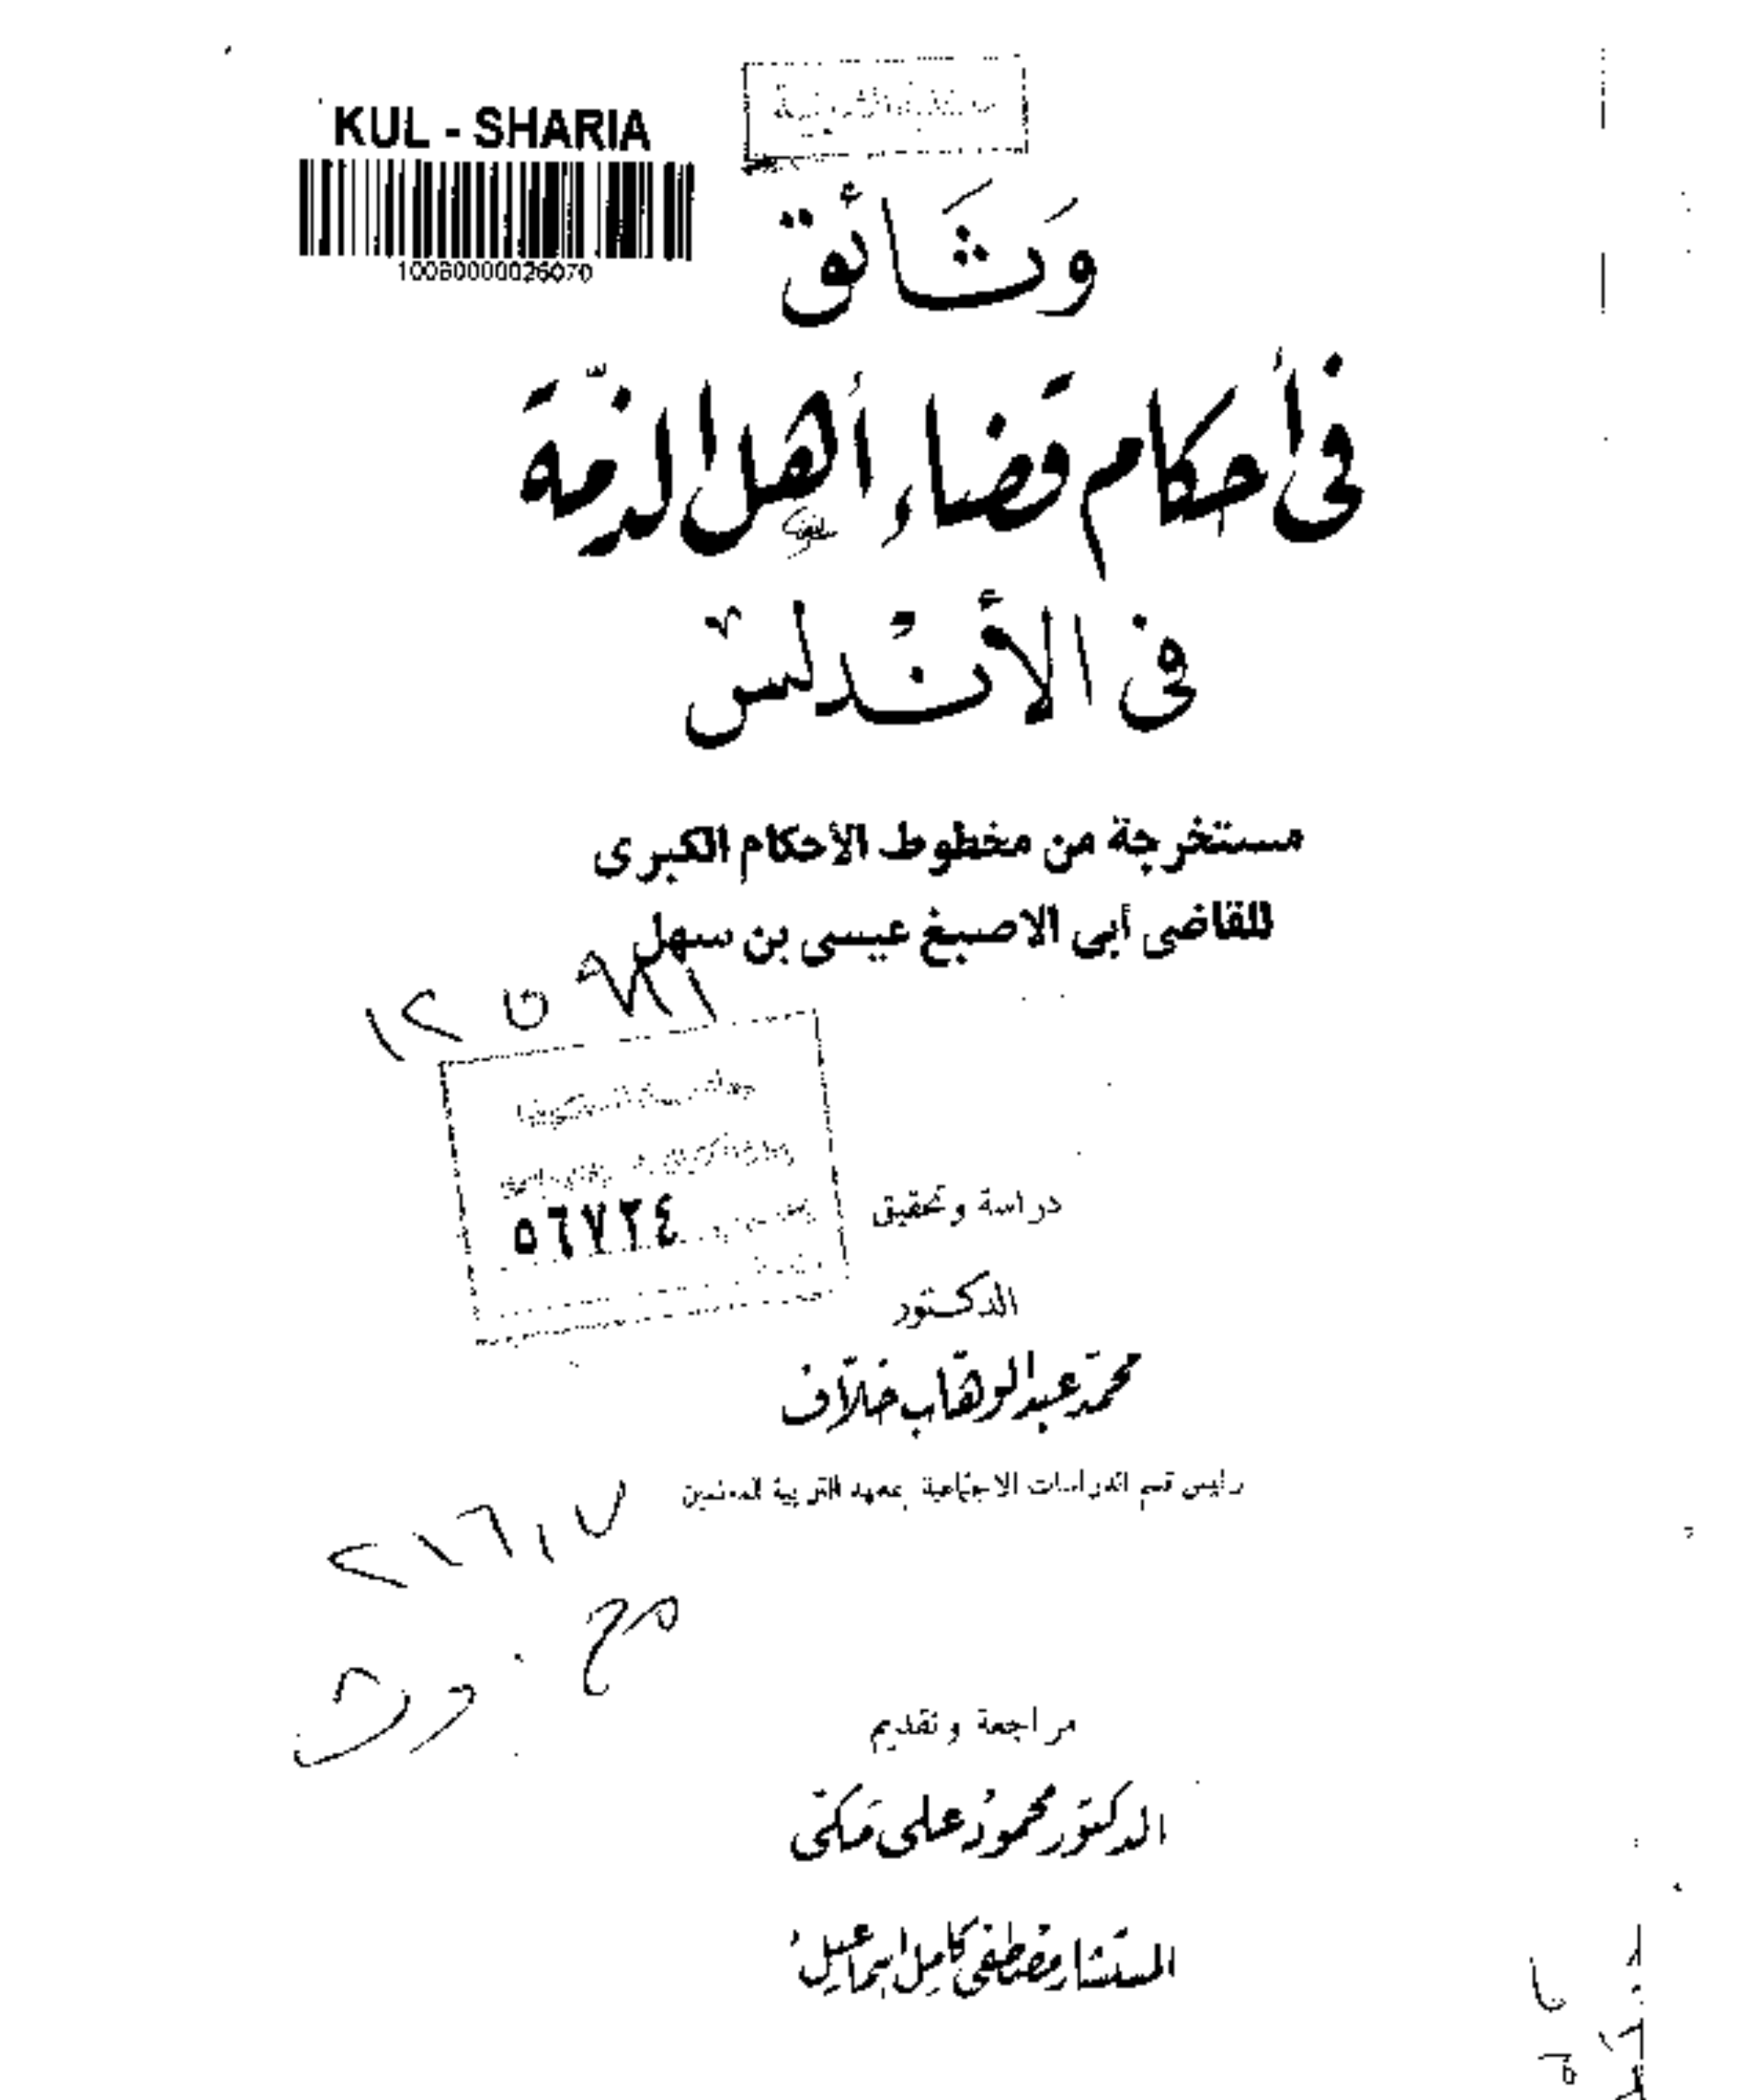 KUL - SHARIA
10060000026070
وَثَائق
في أحكام قضاء أهل الذمّة
في الأندلس
مستخرجة من مخطوط الأحكام الكبرى
للقاضى أبى الاصبغ عيسى بن سهل
٥٦٧٢٤
دراسة وتحقيق
الدكتور
محمد عبد الوهاب خلاف
رئيس قسم الدراسات الاجتماعية بمعهد التربية للمعلمين
٢١٦,٧
مراجعة وتقديم
الدكتور محمود على مكى
المستشار مصطفى كامل إسماعيل